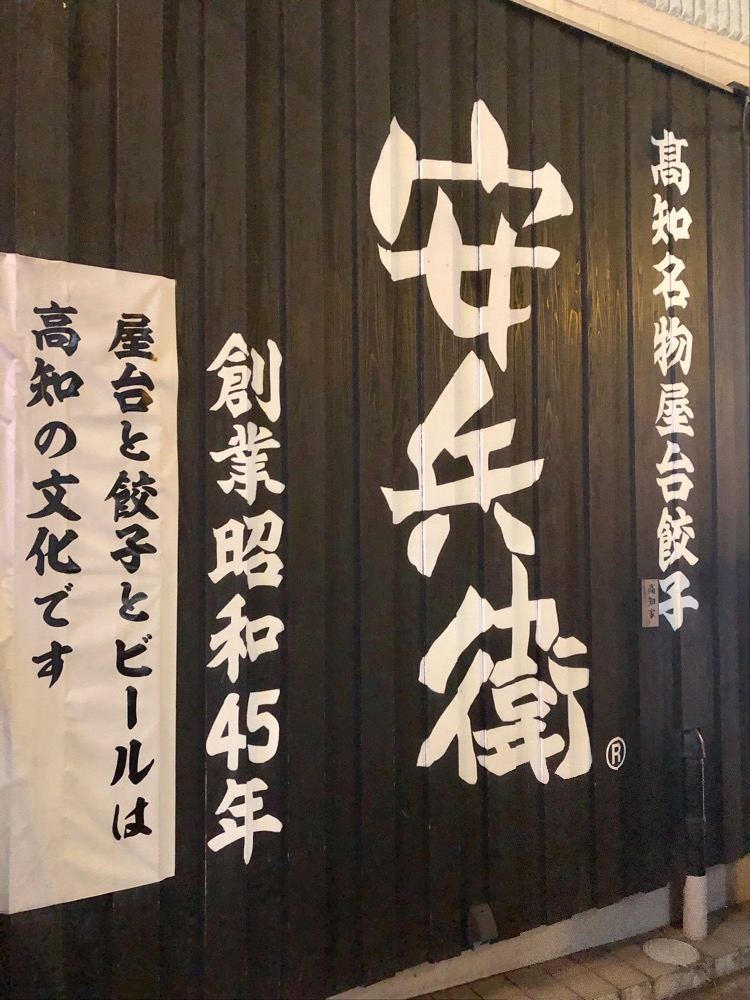 髙知名物屋台餃子
高知家
安兵衛
®
創業昭和45年
屋台と餃子とビールは
高知の文化です